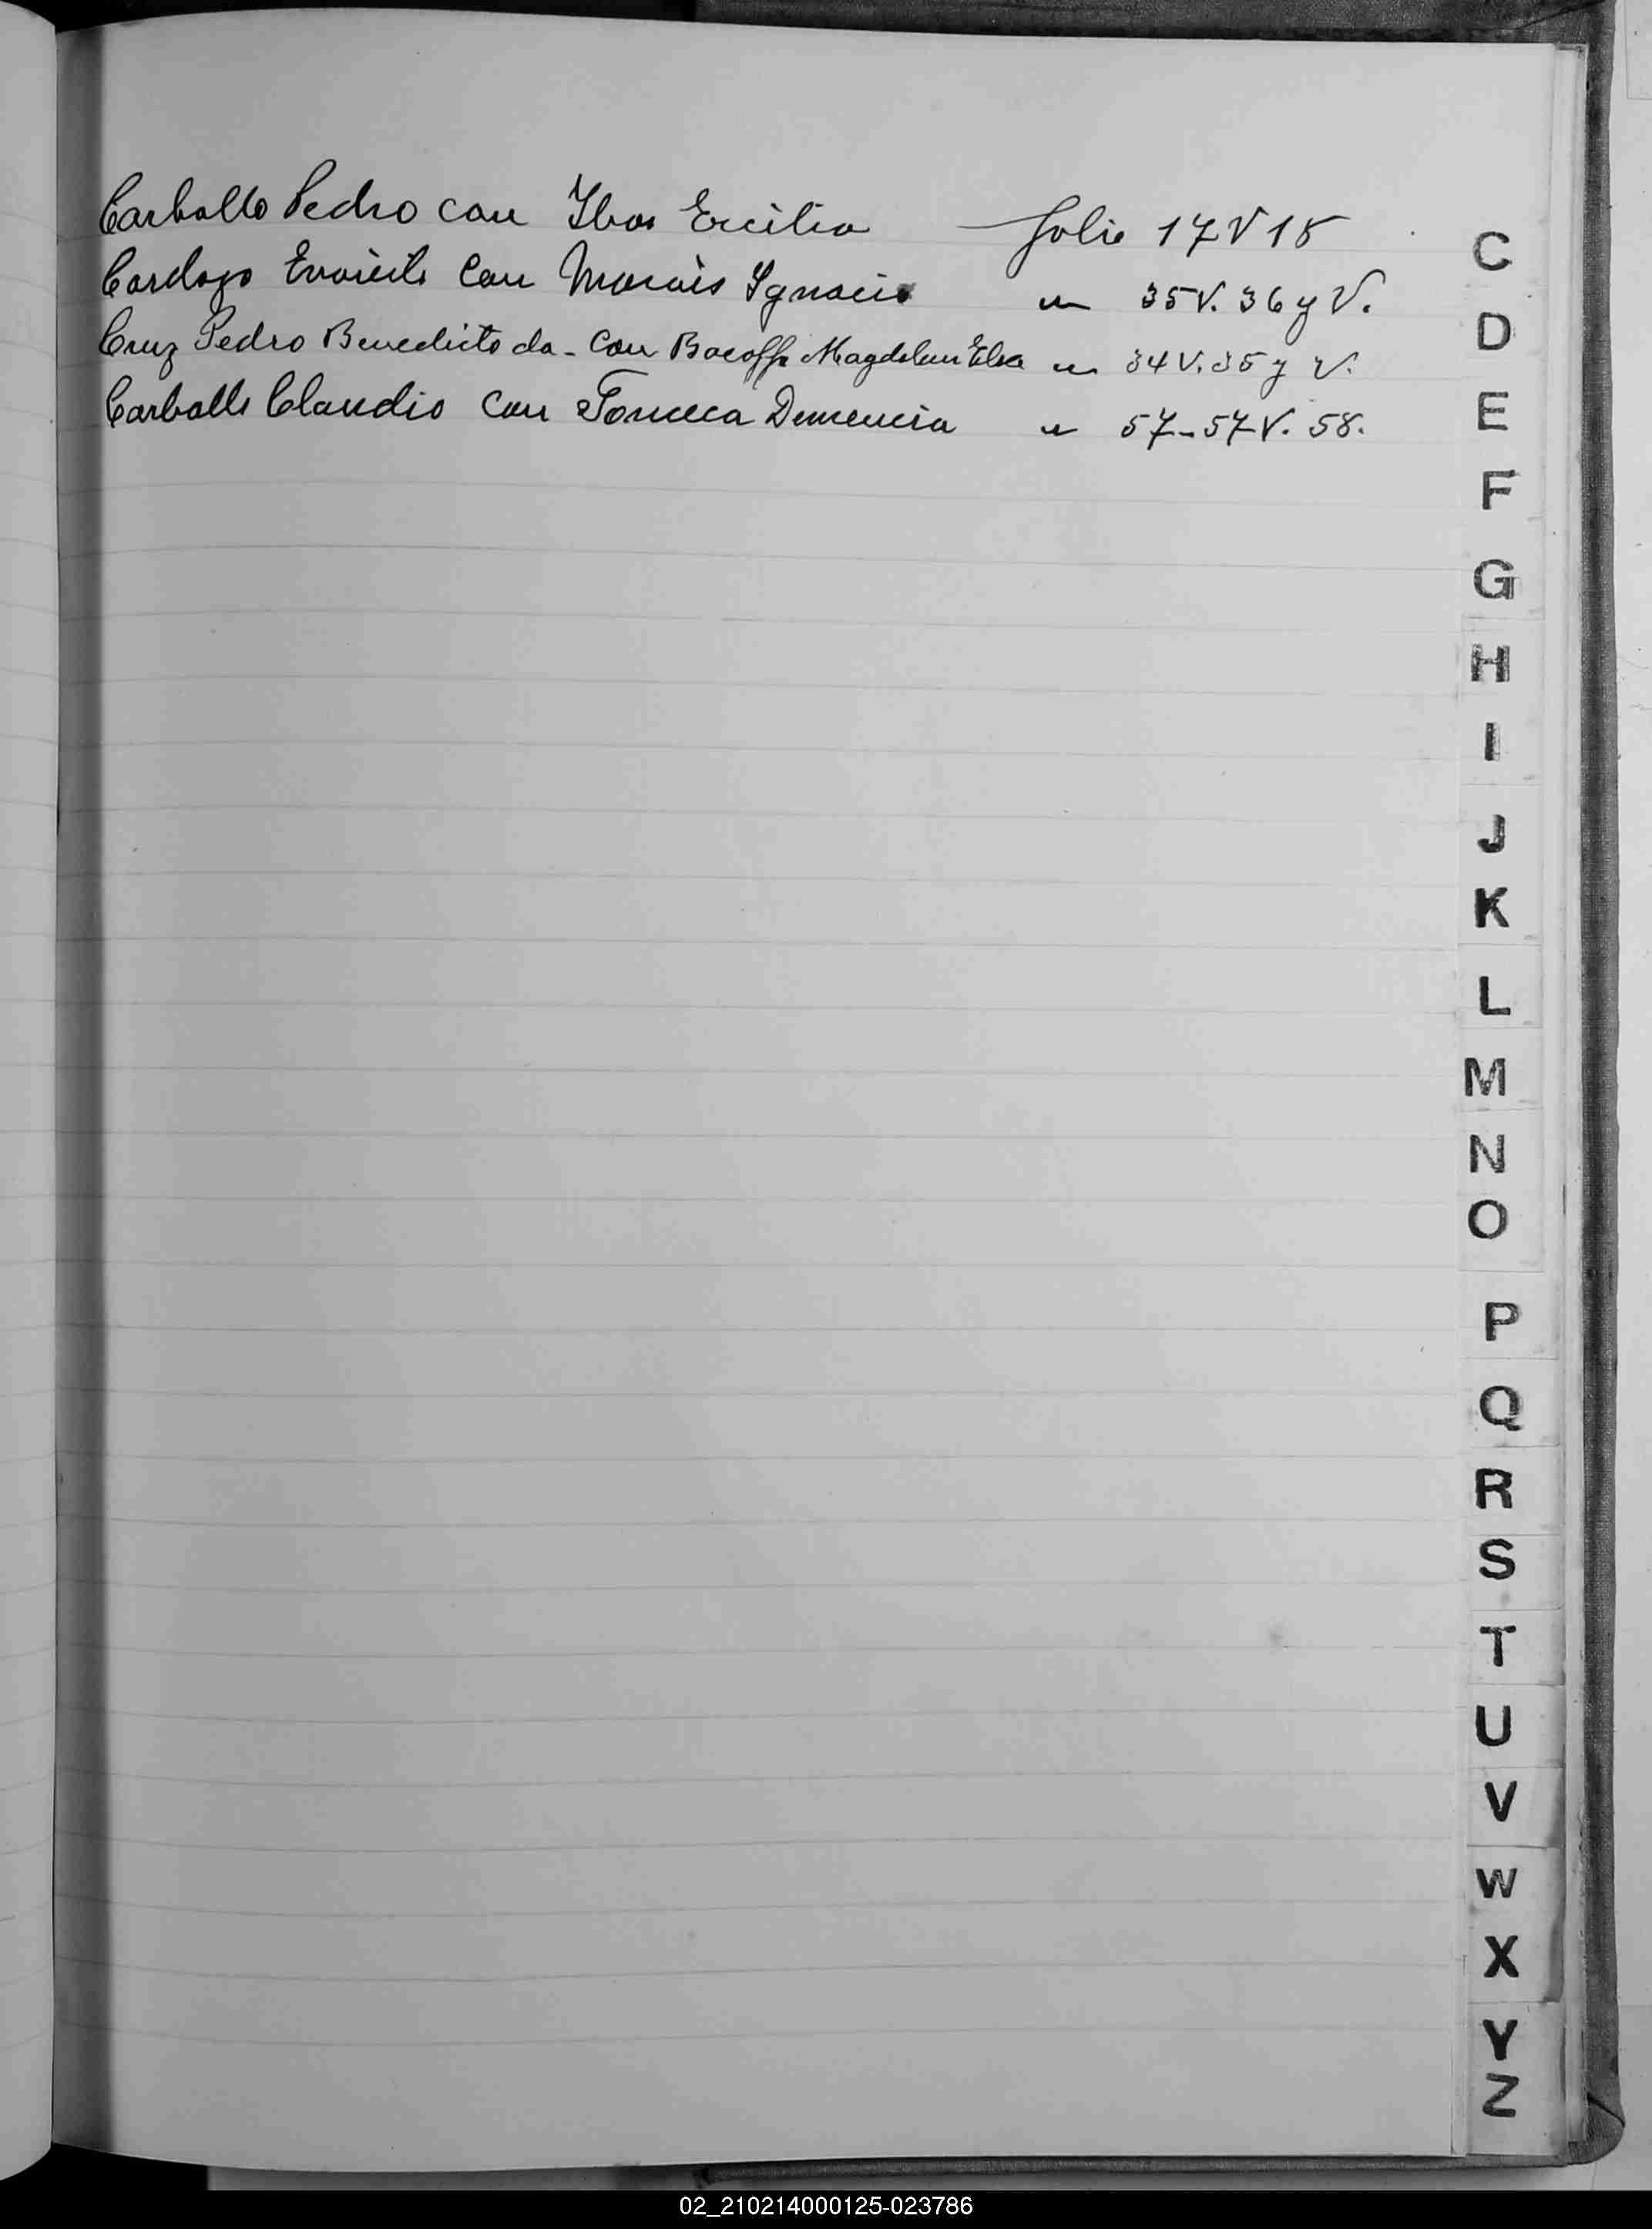 Carballo Pedro con Ibas Ercilia folio 17 V 18
Cardozo Evaristo con Morais Ignacia " 35 V. 36 y V.
Cruz Pedro Benedicto da - con Magdalena Elsa " 34 V. 35 y V.
Carballo Claudio con Fonseca " 57 - 57 V. 58.
C
D
E
F
G
H
I
J
K
L
M
N
O
P
Q
R
S
T
U
V
W
X
Y
Z
02_210214000125-023786